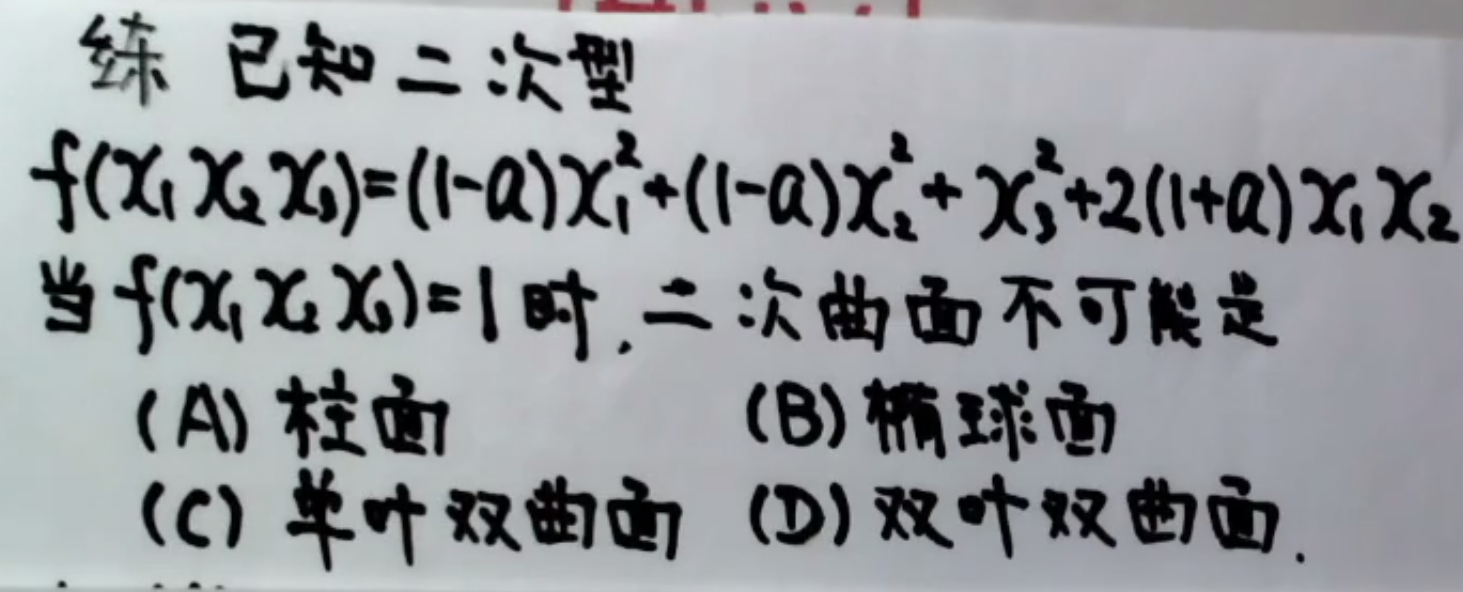 练 已知二次型
f(x₁x₂x₃)=(1-a)x₁²+(1-a)x₂²+x₃²+2(1+a)x₁x₂
当f(x₁x₂x₃)=1时.二次曲面不可能是
(A) 柱面 (B) 椭球面
(C) 单叶双曲面 (D) 双叶双曲面.